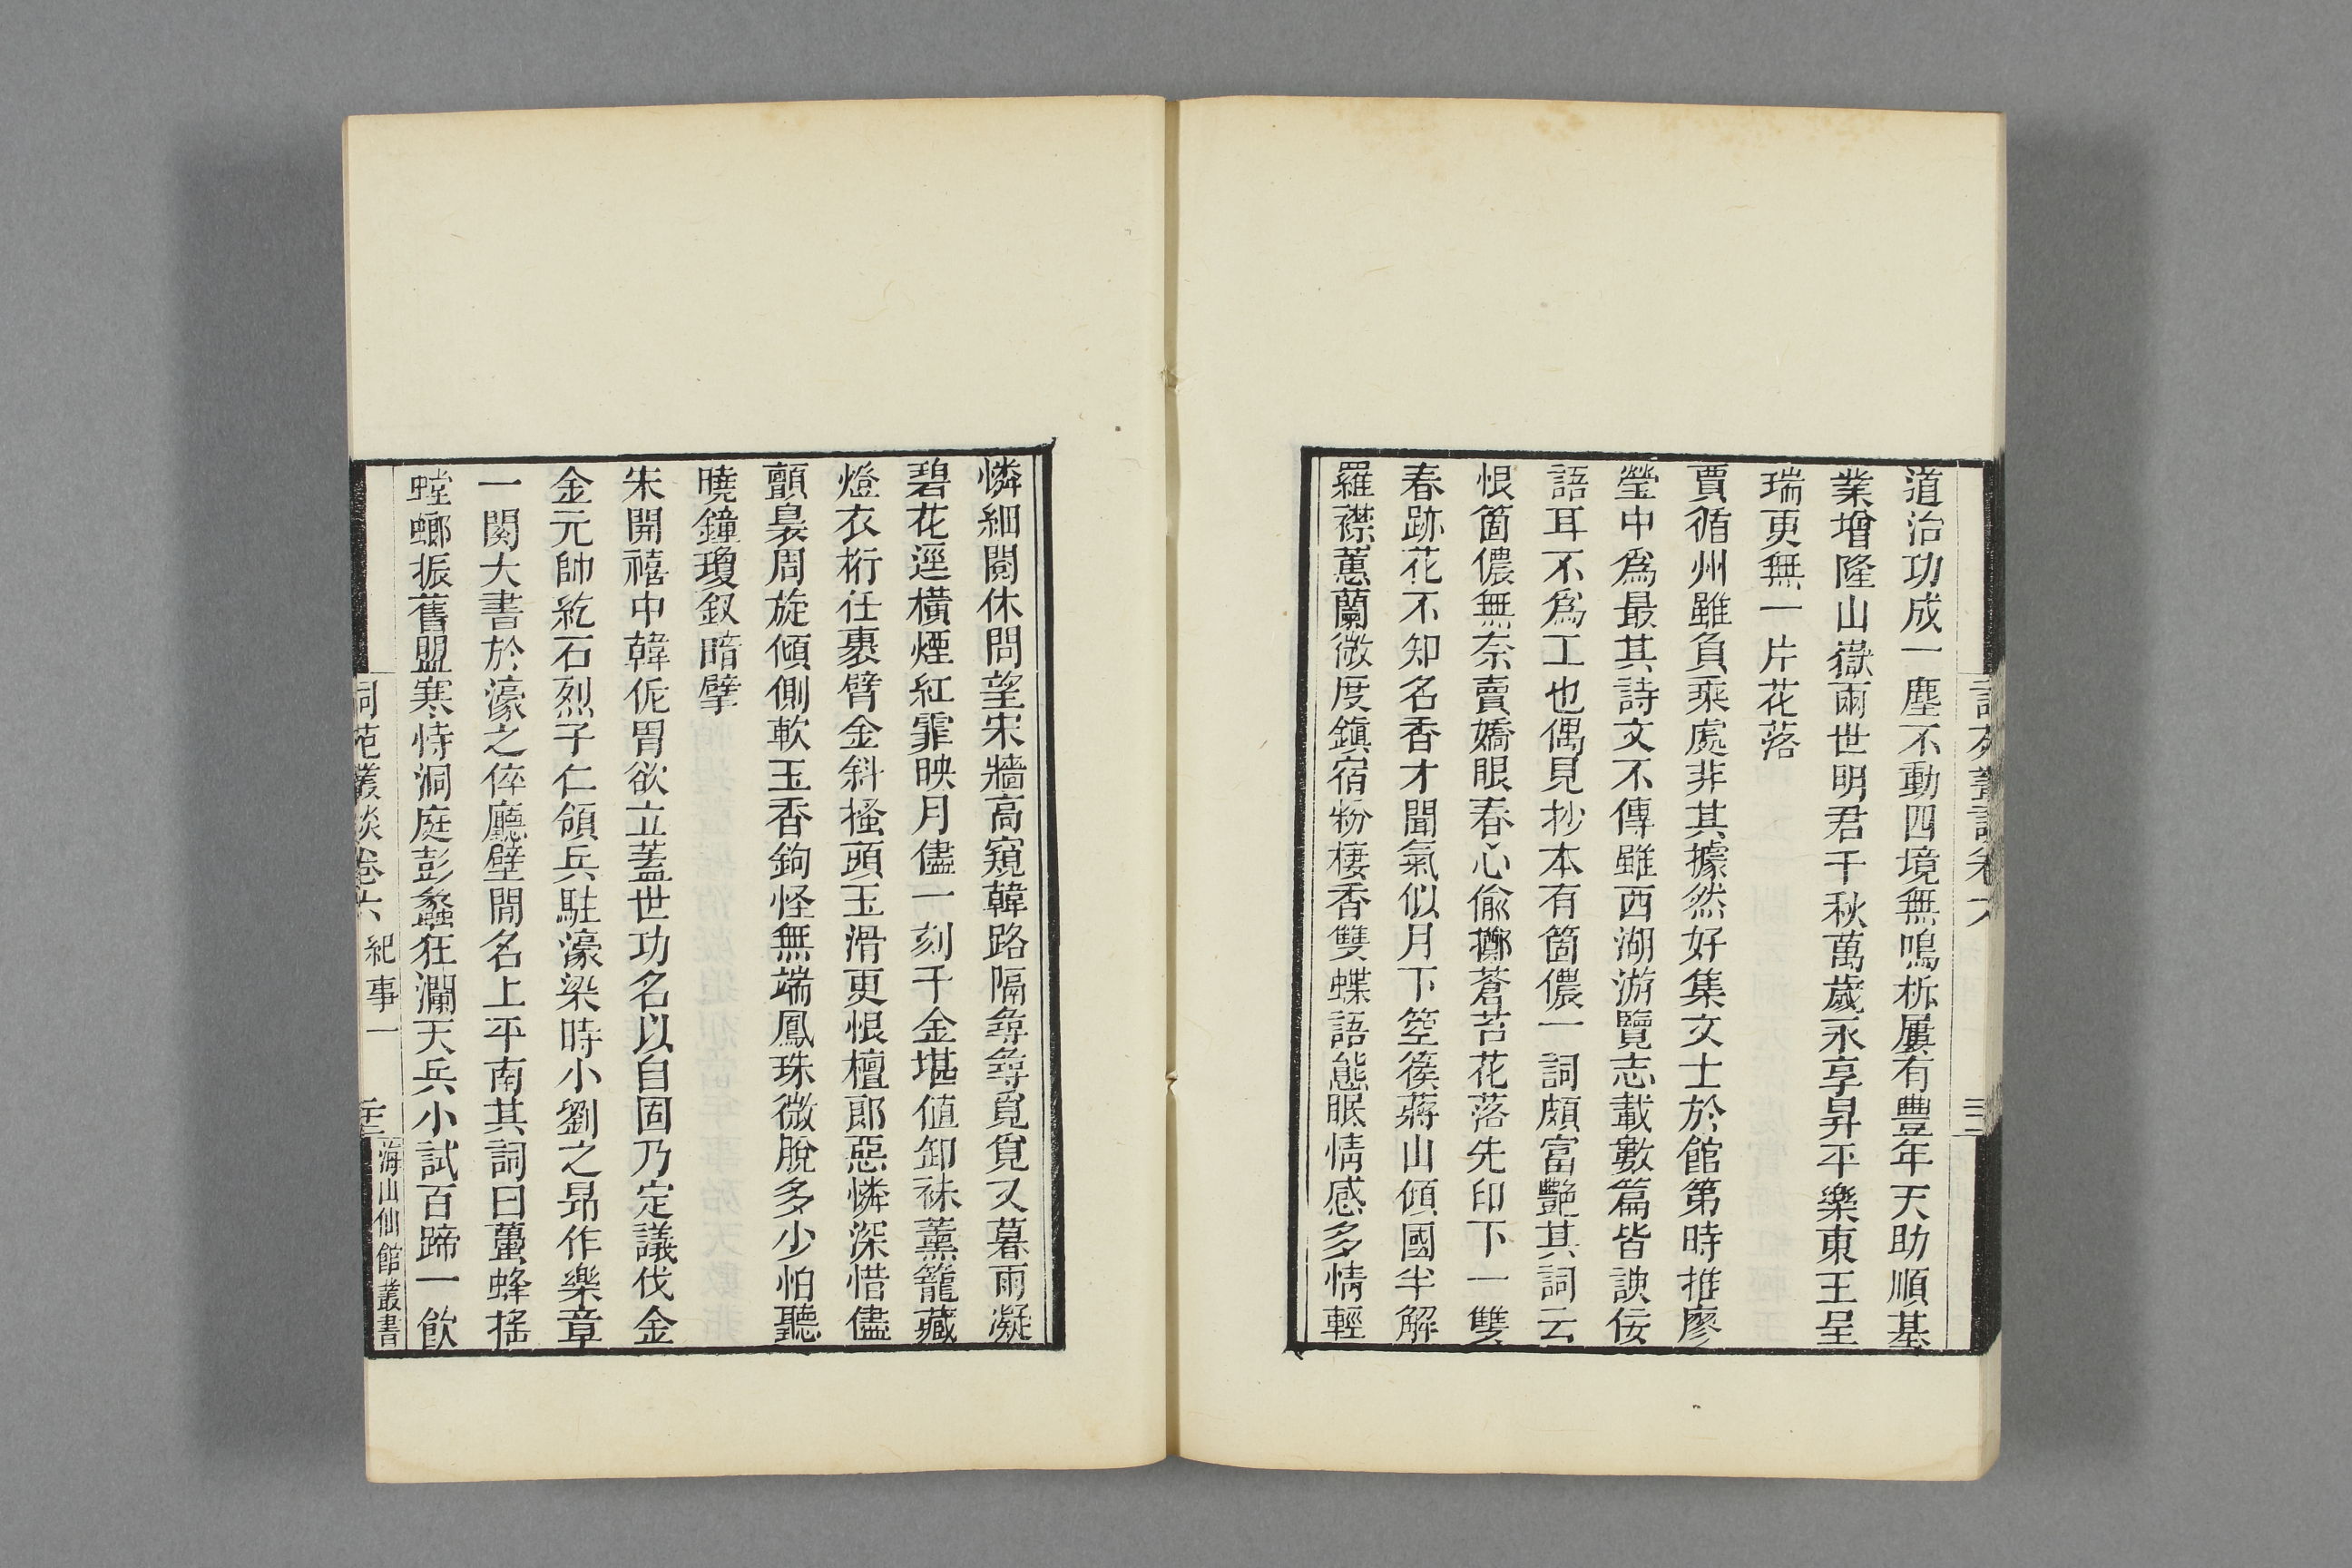 道治功成一塵不動四境無鳴柝屢有豐年天助順基
業增隆山嶽兩世明君千秋萬歲永享昇平樂東王呈
瑞更無一片花落
賈循州雖負乘處非其據然好集文士於館第時推廖
瑩中爲最其詩文不傳雖西湖游覽志載數篇皆諛佞
語耳不爲工也偶見抄本有箇儂一詞頗富艷其詞云
恨箇儂無奈賣嬌眼春心偷擲蒼苔花落先印下一雙
春跡花不知名香才聞氣似月下箜篌蔣山傾國半解
羅襟蕙蘭微度鎭宿粉棲香雙蝶語態眠情感多情輕
憐細閱休問望宋牆高窺韓路隔尋尋覓覓又暮雨凝
碧花逕橫煙紅霏映月儘一刻千金堪值卸袜薰籠藏
燈衣桁任裹臂金斜搔頭玉滑更恨檀郎惡憐深惜儘
顫裊周旋傾側軟玉香鉤怪無端鳳珠微脫多少怕聽
曉鐘瓊釵暗擘
宋開禧中韓侂胄欲立蓋世功名以自固乃定議伐金
金元帥紇石烈子仁領兵駐濠梁時小劉之昂作樂章
一闋大書於濠之倅廳壁間名上平南其詞曰蠆蜂搖
螳螂振舊盟寒恃洞庭彭蠡狂瀾天兵小試百蹄一飲
詞苑叢談卷六 紀事一
海山仙館叢書